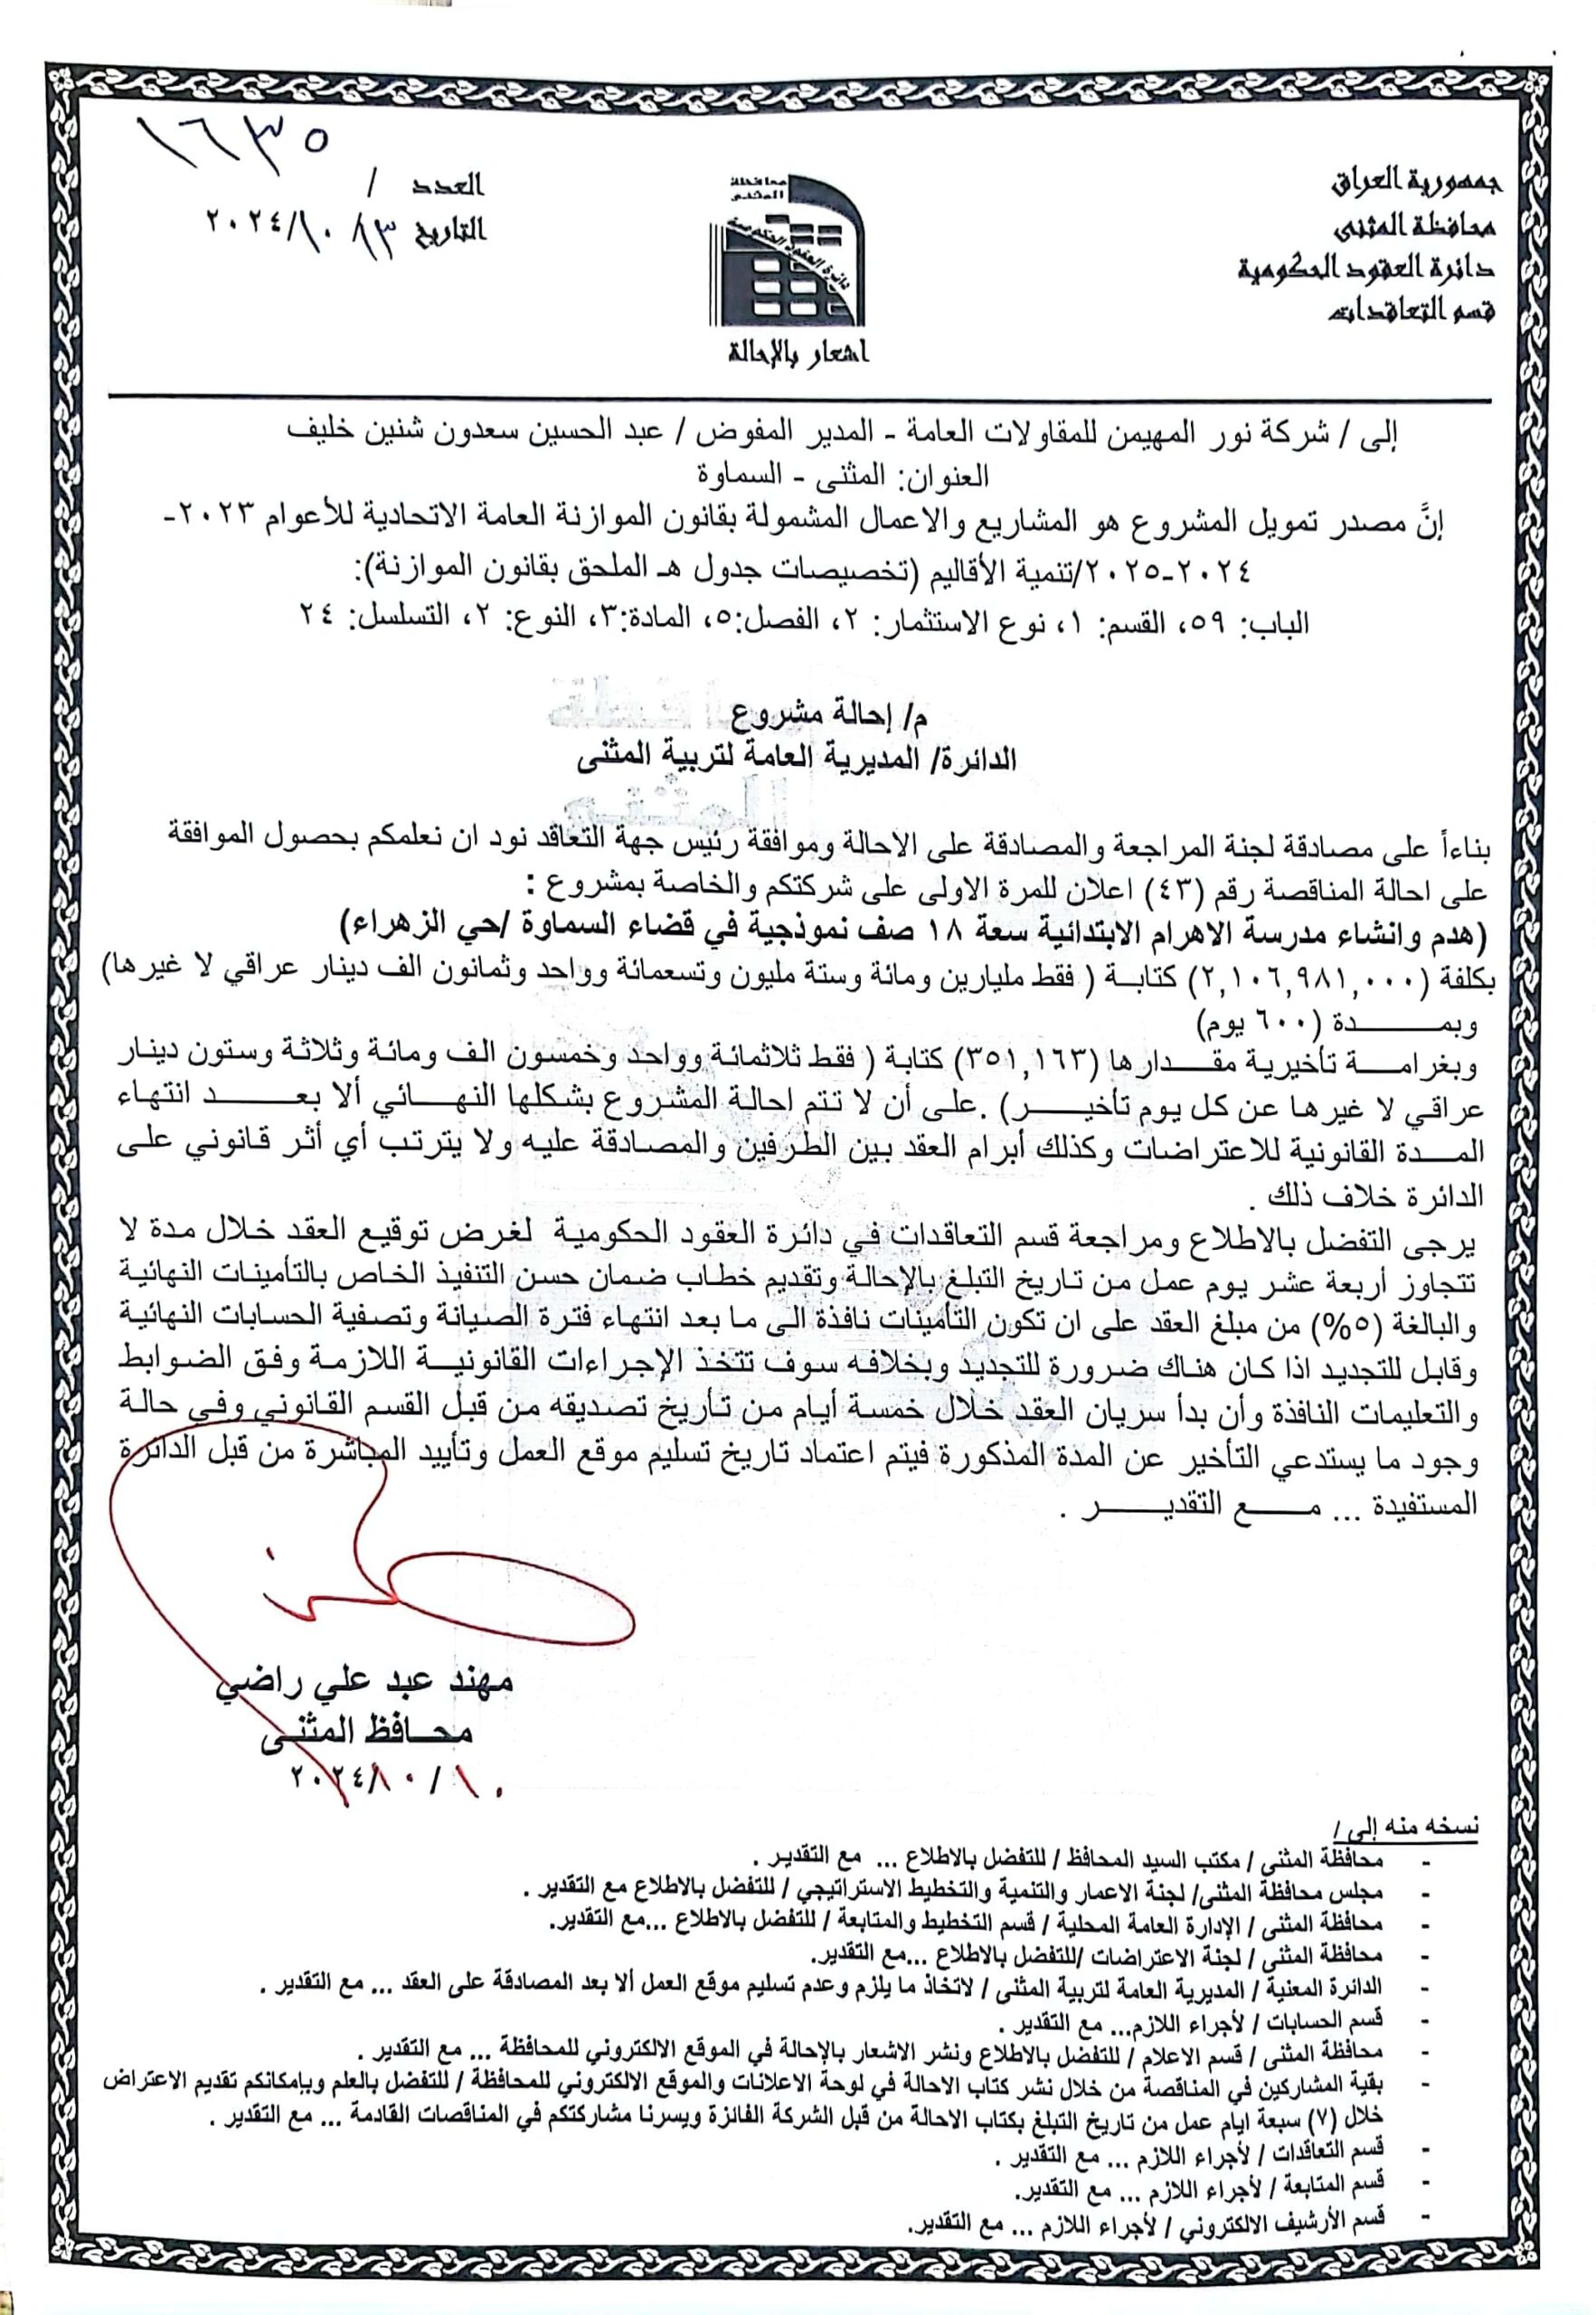 جمهورية العراق
محافظة المثنى
دائرة العقود الحكومية
قسم التعاقدات
محافظة المثنى
دائرة العقود الحكومية
اشعار بالإحالة
١٦٣٥
العدد /
التاريخ ١٣/ ١٠/ ٢٠٢٤
إلى / شركة نور المهيمن للمقاولات العامة - المدير المفوض / عبد الحسين سعدون شنين خليف
العنوان: المثنى - السماوة
إنَّ مصدر تمويل المشروع هو المشاريع والاعمال المشمولة بقانون الموازنة العامة الاتحادية للأعوام ٢٠٢٣-
٢٠٢٤-٢٠٢٥/تنمية الأقاليم (تخصيصات جدول هـ الملحق بقانون الموازنة):
الباب: ٥٩، القسم: ١، نوع الاستثمار: ٢، الفصل:٥، المادة:٣، النوع: ٢، التسلسل: ٢٤
م/ إحالة مشروع
الدائرة/ المديرية العامة لتربية المثنى
بناءاً على مصادقة لجنة المراجعة والمصادقة على الاحالة وموافقة رئيس جهة التعاقد نود ان نعلمكم بحصول الموافقة
على احالة المناقصة رقم (٤٣) اعلان للمرة الاولى على شركتكم والخاصة بمشروع :
(هدم وانشاء مدرسة الاهرام الابتدائية سعة ١٨ صف نموذجية في قضاء السماوة /حي الزهراء)
بكلفة (٢,١٠٦,٩٨١,٠٠٠) كتابــة ( فقط مليارين ومائة وستة مليون وتسعمائة وواحد وثمانون الف دينار عراقي لا غيرها)
وبمــــــدة (٦٠٠ يوم)
وبغرامـــة تأخيرية مقــدارها (٣٥١,١٦٣) كتابة ( فقط ثلاثمائة وواحد وخمسون الف ومائة وثلاثة وستون دينار
عراقي لا غيرها عن كل يوم تأخيـــــر) .على أن لا تتم احالة المشروع بشكلها النهـــائي ألا بعـــــد انتهاء
المـــدة القانونية للاعتراضات وكذلك أبرام العقد بين الطرفين والمصادقة عليه ولا يترتب أي أثر قانوني على
الدائرة خلاف ذلك .
يرجى التفضل بالاطلاع ومراجعة قسم التعاقدات في دائرة العقود الحكومية لغرض توقيع العقد خلال مدة لا
تتجاوز أربعة عشر يوم عمل من تاريخ التبلغ بالإحالة وتقديم خطاب ضمان حسن التنفيذ الخاص بالتأمينات النهائية
والبالغة (٥%) من مبلغ العقد على ان تكون التأمينات نافذة الى ما بعد انتهاء فترة الصيانة وتصفية الحسابات النهائية
وقابل للتجديد اذا كان هناك ضرورة للتجديد وبخلافه سوف تتخذ الإجراءات القانونيــة اللازمة وفق الضوابط
والتعليمات النافذة وأن بدأ سريان العقد خلال خمسة أيام من تأريخ تصديقه من قبل القسم القانوني وفي حالة
وجود ما يستدعي التأخير عن المدة المذكورة فيتم اعتماد تاريخ تسليم موقع العمل وتأييد المباشرة من قبل الدائرة
المستفيدة ... مـــــع التقديـــــــر .
مهند عبد علي راضي
محـــافظ المثنــى
١٠/ ١٠/ ٢٠٢٤
نسخه منه إلى /
- محافظة المثنى / مكتب السيد المحافظ / للتفضل بالاطلاع ... مع التقدير .
- مجلس محافظة المثنى/ لجنة الاعمار والتنمية والتخطيط الاستراتيجي / للتفضل بالاطلاع مع التقدير .
- محافظة المثنى / الإدارة العامة المحلية / قسم التخطيط والمتابعة / للتفضل بالاطلاع ...مع التقدير.
- محافظة المثنى / لجنة الاعتراضات /للتفضل بالاطلاع ...مع التقدير.
- الدائرة المعنية / المديرية العامة لتربية المثنى / لاتخاذ ما يلزم وعدم تسليم موقع العمل ألا بعد المصادقة على العقد ... مع التقدير .
- قسم الحسابات / لأجراء اللازم... مع التقدير .
- محافظة المثنى / قسم الاعلام / للتفضل بالاطلاع ونشر الاشعار بالإحالة في الموقع الالكتروني للمحافظة ... مع التقدير .
- بقية المشاركين في المناقصة من خلال نشر كتاب الاحالة في لوحة الاعلانات والموقع الالكتروني للمحافظة / للتفضل بالعلم وبإمكانكم تقديم الاعتراض
خلال (٧) سبعة ايام عمل من تاريخ التبلغ بكتاب الاحالة من قبل الشركة الفائزة ويسرنا مشاركتكم في المناقصات القادمة ... مع التقدير .
- قسم التعاقدات / لأجراء اللازم ... مع التقدير .
- قسم المتابعة / لأجراء اللازم ... مع التقدير.
- قسم الأرشيف الالكتروني / لأجراء اللازم ... مع التقدير.